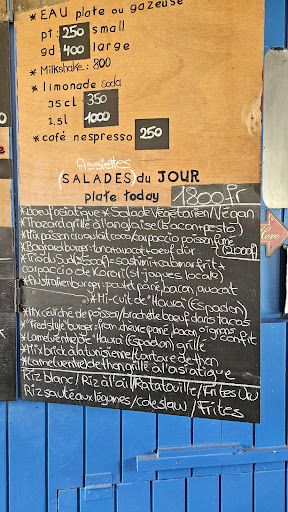 * EAU plate ou gazeuse
pt: 250 small
gd: 400 large
* Milkshake: 800
* limonade soda
35cl 350
1.5l 1000
* café nespresso 250
Assiettes
(SALADES) du JOUR
plate today 1800.fr
* Boeuf asiatique * Salade Végétarien/Vegan
* Thazard grillé à l'anglaise (bacon-pesto)
* Mix poisson cru au lait coco/carpaccio poisson fumé
burger: thon avocat oeuf dur (2000fr)
* Trio du Sud sashimi frit
carpaccio de Korori (st jaques locale)
* Australien burger: poulet pané, bacon, avocat
* Mi-cuit de "Haura" (Espadon)
* Mix ceviche de poisson/brochette boeuf dans tacos
burger: chèvre pané, bacon, oignons confit
* (Larme ventre) de "Haura" (Espadon) grillé
* Mix brick à la tunisienne/tartare de thon
* (Larme ventre) de thon grillé à l'asiatique
Riz blanc/Riz à l'ail/Ratatouille/Frites Uru
Riz sauté aux légumes/coleslaw/Frites